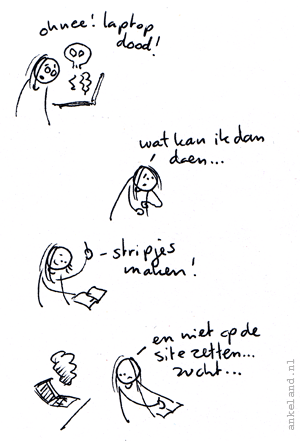 ohnee! laptop
dood!
wat kan ik dan
doen...
- stripjes
maken!
en niet op de
site zetten...
zucht...
ankeland.nl